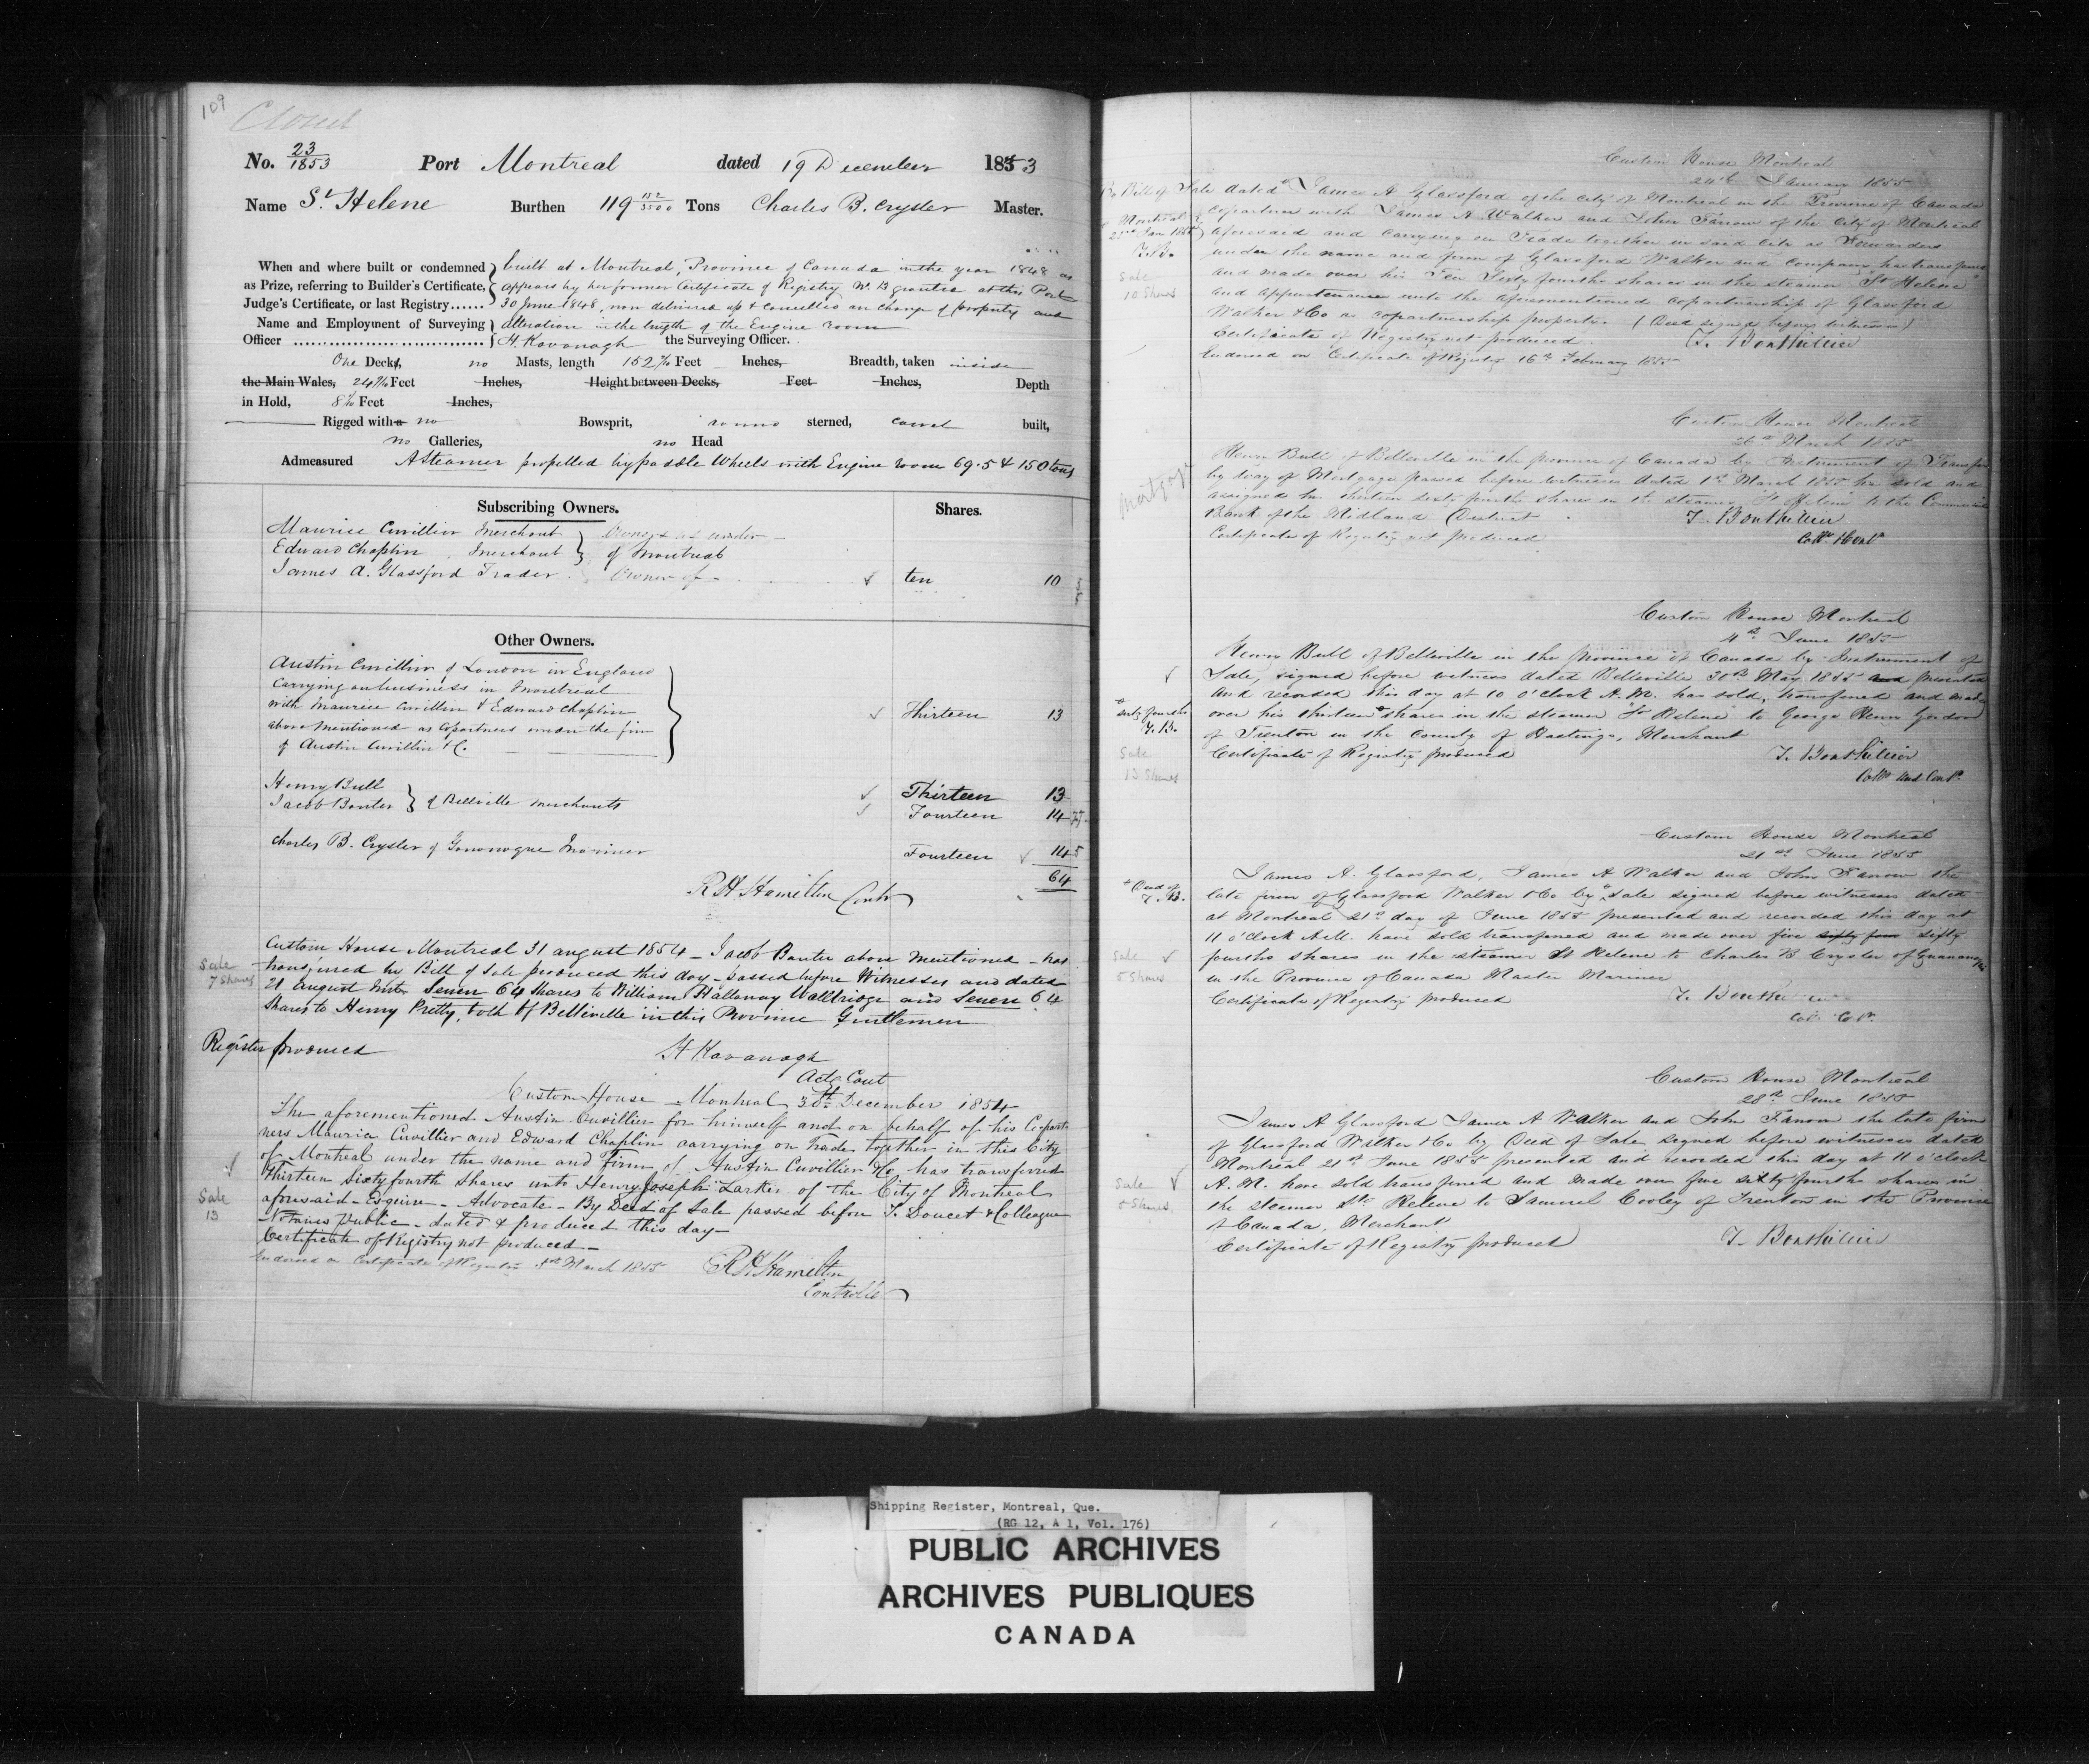 109
Closed
No. 23/1853 Port Montreal dated 19 December 1853
Name St Helene Burthen 119 152/3500 Tons Charles B. Crysler Master.
When and where built or condemned built at Montreal, Province of Canada in the year 1848 as
as Prize, referring to Builder's Certificate, appears by her former Certificate of Registry at this Port
Judge's Certificate, or last Registry...... 30 June 1848, now delivered up & cancelled on change of property and
Name and Employment of Surveying alteration in the length of the Engine room
Officer H. Kavanagh the Surveying Officer.
One Decks, no Masts, length 152 Feet Inches, Breadth, taken inside
the Main Wales, 24 Feet Inches, Height between Decks, Feet Inches, Depth
in Hold, 8 Feet Inches,
Rigged with a no Bowsprit, round sterned, carvel built,
no Galleries, no Head
Admeasured A Steamer propelled by paddle Wheels with Engine room 69.5 & 150 tons
Subscribing Owners. Shares.
Maurice Cuvillier Merchant Owners as under
Edward Chaplin Merchant of Montreal
James A. Glassford Trader Owner of ten 10
Other Owners.
Austin Cuvillier of London in England
Carrying on business in Montreal
with Maurice Cuvillier & Edward Chaplin Thirteen 13
above mentioned as Copartners under the firm
of Austin Cuvillier & C.
Henry Bull Thirteen 13
Jacob Banter of Belleville Merchants Fourteen 14
Charles B. Crysler of Gananoque Mariner Fourteen 14
64
R H Hamilton Contr
Custom House Montreal 31 August 1854 - Jacob Banter above mentioned - has
Sale
7 Shares
transferred by Bill of Sale produced this day - passed before Witnesses and dated
21 August Inst Seven 64 Shares to William Hallaway Walbridge and Seven 64
Shares to Henry Pretty, both of Belleville in this Province Gentlemen
Register produced
H Kavanagh
Actg Cont
Custom House Montreal 30th December 1854
The aforementioned Austin Cuvillier for himself and on behalf of his Copart
ners Maurice Cuvillier and Edward Chaplin carrying on Trade together in this City
of Montreal under the name and Firm of Austin Cuvillier & Co has transferred
Thirteen Sixty fourth Shares unto Henry Joseph Larkin of the City of Montreal
Sale
13
aforesaid - Esquire - Advocate - By Deed of Sale passed before T. Doucet & Colleague
Notaries Public - dated & produced this day -
Certificate of Registry not produced -
Endorsed on Certificate of Registry March 1855
R H Hamilton
Controller
Custom House Montreal
24th January 1855
By Bill of Sale dated
Montreal
23rd Jan 1855
T.B.
Sale
10 Shares
James A Glassford of the City of Montreal in the Province of Canada
Copartner with James A Walker and John Farrow of the City of Montreal
aforesaid and Carrying on Trade together in said City as Forwarders
under the name and firm of Glassford Walker and Company has transferred
and made over his Ten Sixty fourths shares in the steamer "St Helene"
and appurtenances unto the aforementioned copartnership of Glassford
Walker & Co as copartnership property. (Deed signed before witnesses)
Certificate of Registry not produced. T. Bouthillier
Endorsed on Certificate of Registry 16th February 1855
Custom House Montreal
26th March 1855
Mortgage
Henry Bull of Belleville in the province of Canada by Instrument of Transfer
by way of Mortgage passed before witnesses dated 1st March 1855 has sold and
assigned his thirteen sixty fourths shares in the steamer St Helene to the Commercial
Bank of the Midland District
T. Bouthillier
Certificate of Registry not produced
Collr & Cont
Custom House Montreal
4th June 1855
Henry Bull of Belleville in the province of Canada by Instrument of
Sale, signed before witness dated Belleville 30th May 1855 and presented
and recorded this day at 10 o'clock A.M. has sold, transferred and made
sixty fourths
T.B.
over his thirteen shares in the steamer "St Helene" to George Henry Gordon
of Trenton in the County of Hastings, Merchant
Sale
13 Shares
Certificate of Registry produced T. Bouthillier
Collr and Contr.
Custom House Montreal
21st June 1855
James A. Glassford, James A Walker and John Farrow the
Deed of
T.B.
late firm of Glassford Walker & Co by Sale signed before witnesses dated
at Montreal 21st day of June 1855 presented and recorded this day at
11 o'clock A.M. have sold transferred and made over five sixty four sixty
Sale
5 Shares
fourths shares in the steamer St Helene to Charles B Crysler of Gananoque
in the Province of Canada Master Mariner
Certificate of Registry produced T. Bouthillier
Col. Cr.
Custom House Montreal
28th June 1855
James A Glassford James A Walker and John Farrow the late firm
of Glassford Walker & Co by Deed of Sale signed before witnesses dated
Montreal 21st June 1855 presented and recorded this day at 11 o'clock
A.M. have sold transferred and made over five sixty fourths shares in
Sale
5 Shares
the steamer St. Helene to Samuel Cooley of Trenton in the Province
of Canada, Merchant
Certificate of Registry produced T. Bouthillier
Shipping Register, Montreal, Que.
(RG 12, A 1, Vol. 176)
PUBLIC ARCHIVES
ARCHIVES PUBLIQUES
CANADA